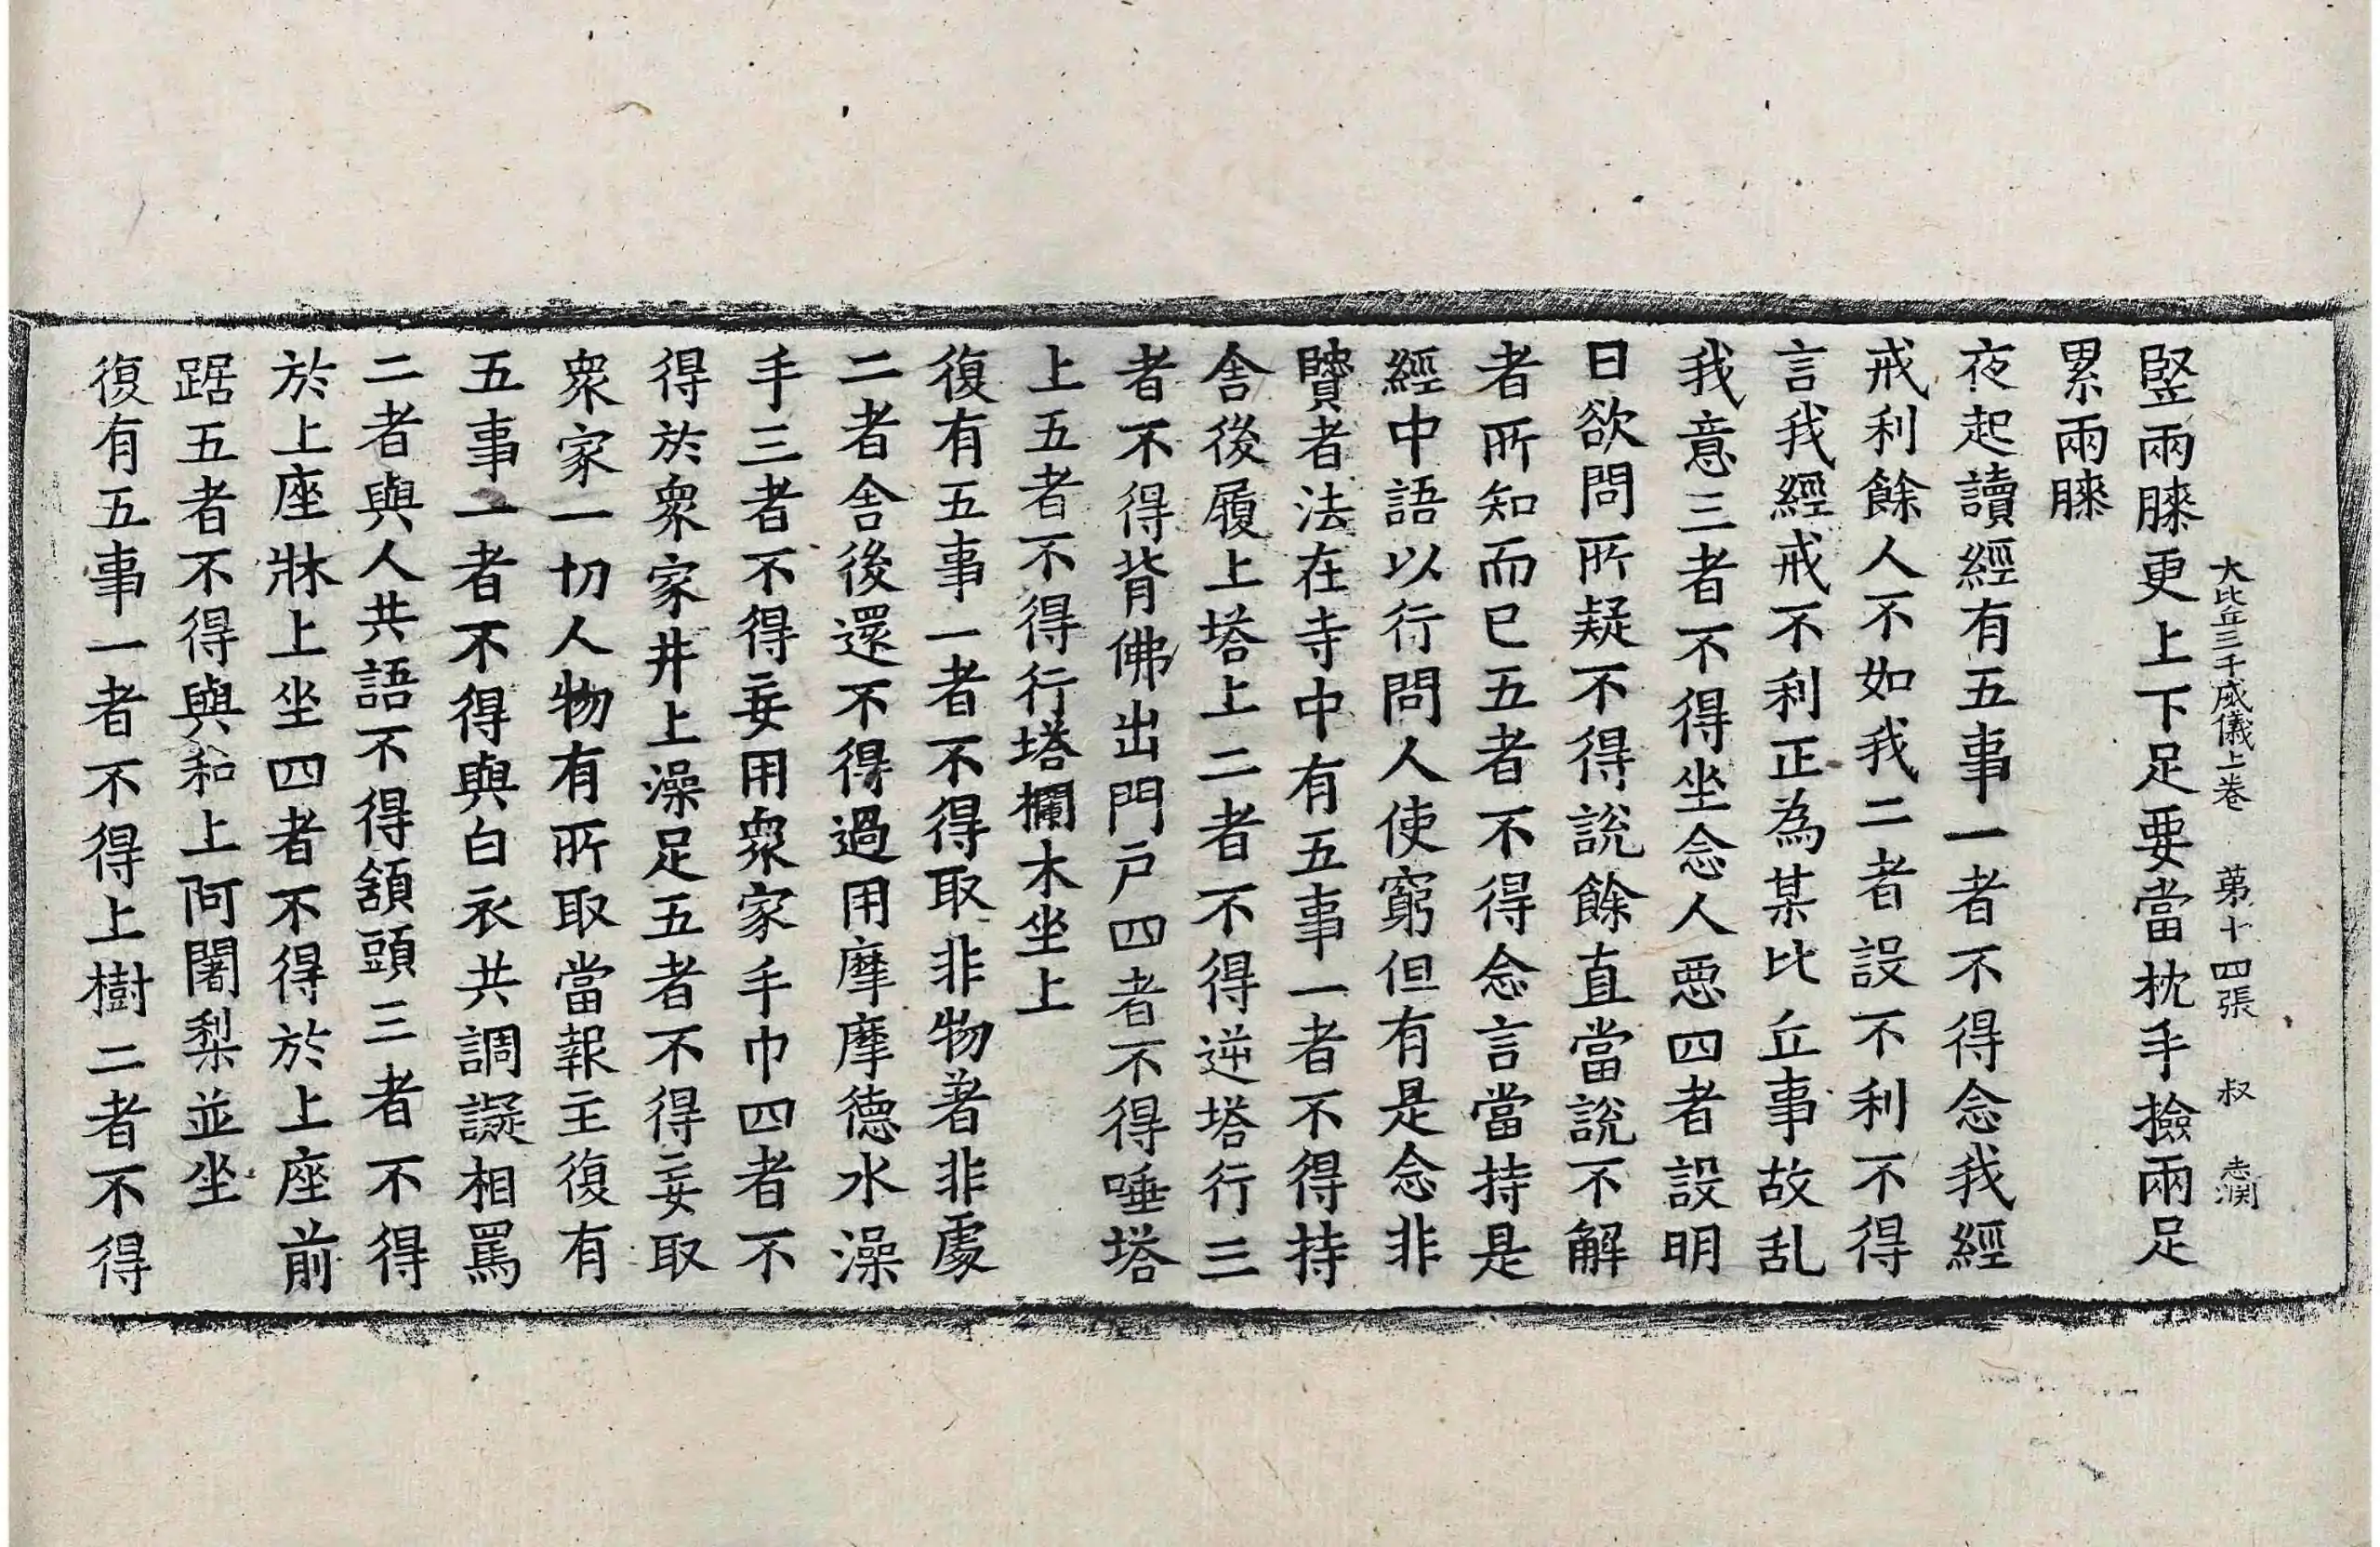 大比丘三千威儀上卷 第十四張 叔
竪兩膝更上下足要當枕手撿兩足
累兩膝
夜起讀經有五事一者不得念我經
戒利餘人不如我二者設不利不得
言我經戒不利正為某比丘事故乱
我意三者不得坐念人惡四者設明
日欲問所疑不得說餘直當說不解
者所知而已五者不得念言當持是
經中語以行問人使窮但有是念非
賢者法在寺中有五事一者不得持
舍後履上塔上二者不得逆塔行三
者不得背佛出門戶四者不得唾塔
上五者不得行塔欄木坐上
復有五事一者不得取非物著非處
二者舍後還不得過用摩摩德水澡
手三者不得妄用衆家手巾四者不
得於衆家井上澡足五者不得妄取
衆家一切人物有所取當報主復有
五事一者不得與白衣共調譺相罵
二者與人共語不得頟頭三者不得
於上座牀上坐四者不得於上座前
踞五者不得與和上阿闍梨並坐
復有五事一者不得上樹二者不得